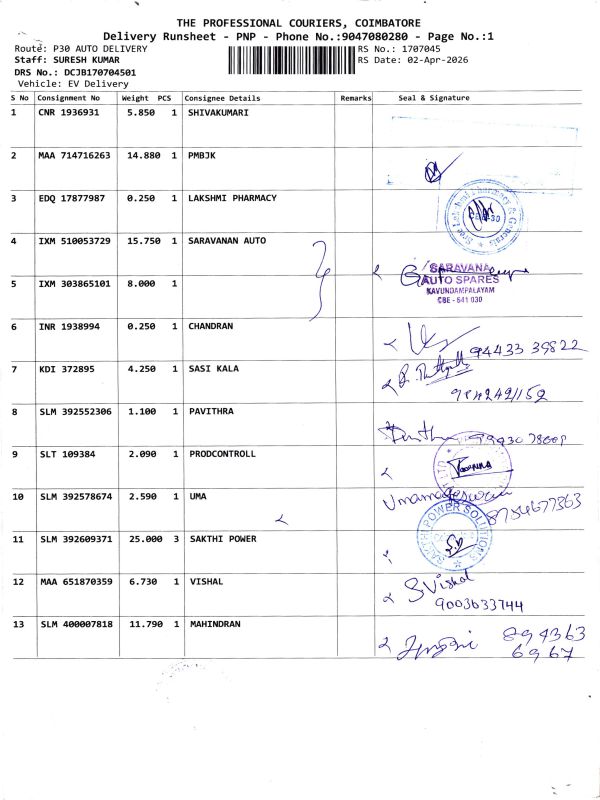 THE PROFESSIONAL COURIERS, COIMBATORE
Delivery Runsheet - PNP - Phone No.:9047080280 - Page No.:1
Route: P30 AUTO DELIVERY RS No.: 1707045
Staff: SURESH KUMAR RS Date: 02-Apr-2026
DRS No.: DCJB170704501
Vehicle: EV Delivery
S No Consignment No Weight PCS Consignee Details Remarks Seal & Signature
1 CNR 1936931 5.850 1 SHIVAKUMARI
2 MAA 714716263 14.880 1 PMBJK
3 EDQ 17877987 0.250 1 LAKSHMI PHARMACY
4 IXM 510053729 15.750 1 SARAVANAN AUTO
SARAVANA
AUTO SPARES
KAVUNDAMPALAYAM
CBE - 641 030
5 IXM 303865101 8.000 1
6 INR 1938994 0.250 1 CHANDRAN 94433 39822
7 KDI 372895 4.250 1 SASI KALA
8 SLM 392552306 1.100 1 PAVITHRA
9 SLT 109384 2.090 1 PRODCONTROLL
10 SLM 392578674 2.590 1 UMA 8754677363
11 SLM 392609371 25.000 3 SAKTHI POWER SAKTHI POWER SOLUTIONS
12 MAA 651870359 6.730 1 VISHAL S Vishal
9003633744
13 SLM 400007818 11.790 1 MAHINDRAN 894363
6967